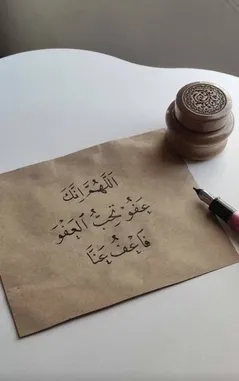 اَللَّهُمَّ إِنَّكَ
عَفُوٌّ تُحِبُّ الْعَفْوَ
فَاعْفُ عَنَّا